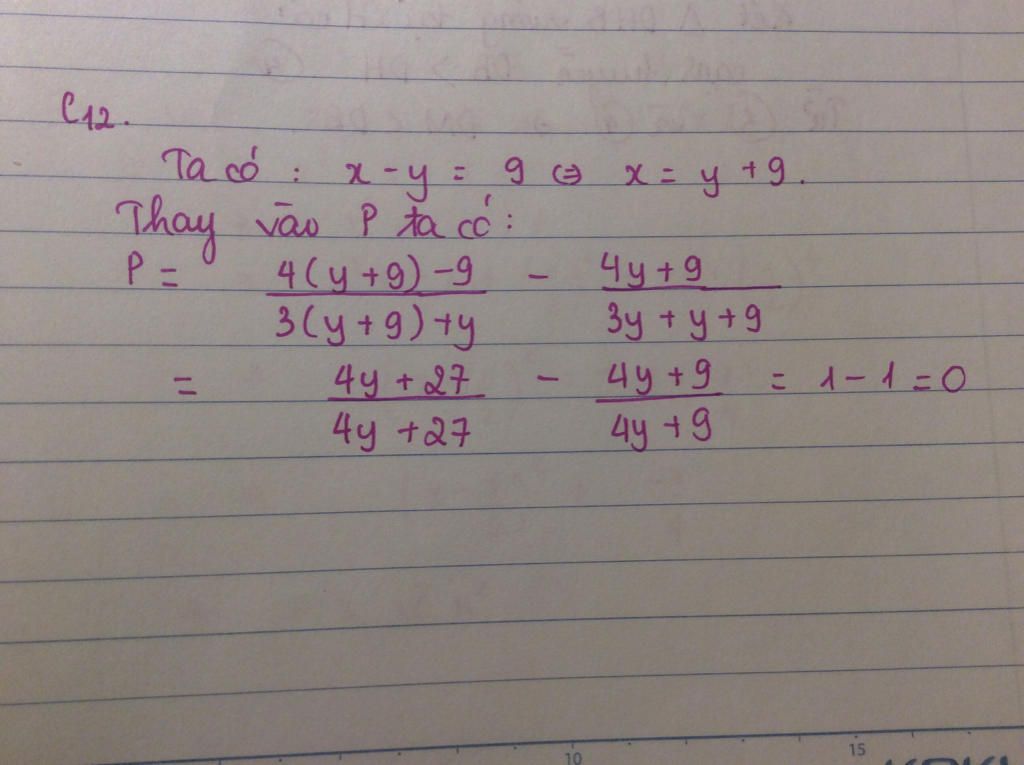 C12.
Ta có : x - y = 9 ⇔ x = y + 9.
Thay vào P ta có :
P = \frac{4(y+9)-9}{3(y+9)+y} - \frac{4y+9}{3y+y+9}
= \frac{4y+27}{4y+27} - \frac{4y+9}{4y+9} = 1 - 1 = 0
10 15